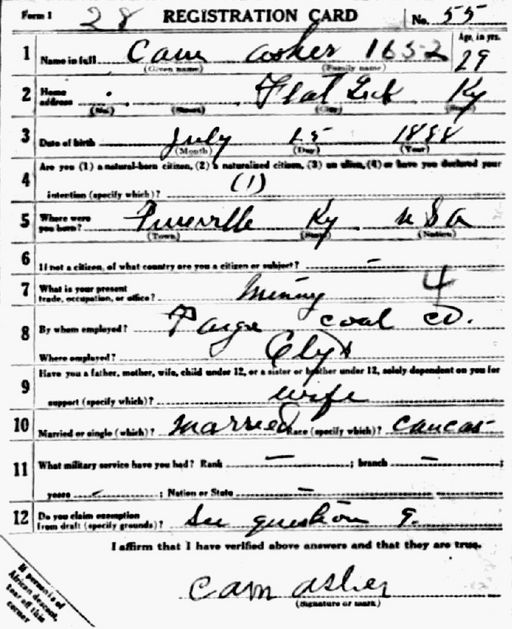 Form 1 28 REGISTRATION CARD No. 55
1 Name in full Cam Asher 1652 Age, in yrs. 29
(Given name) (Family name)
2 Home address Flat Lick Ky
(No.) (Street) (City) (State)
3 Date of birth July 15 1888
(Month) (Day) (Year)
Are you (1) a natural-born citizen, (2) a naturalized citizen, (3) an alien, (4) or have you declared your
4 intention (specify which)? (1)
5 Where were you born? Pineville Ky U S A
(Town) (State) (Nation)
6 If not a citizen, of what country are you a citizen or subject? -
7 What is your present trade, occupation, or office? Mining 4
8 By whom employed? Paige coal co.
Where employed?
9 Have you a father, mother, wife, child under 12, or a sister or brother under 12, solely dependent on you for
support (specify which)? wife
10 Married or single (which)? Married Race (specify which)? Caucas-
11 What military service have you had? Rank - ; branch - ;
years - ; Nation or State -
12 Do you claim exemption from draft (specify grounds)? See question 9.
I affirm that I have verified above answers and that they are true.
Cam Asher
(Signature or mark)
If person is of
African descent,
tear off this
corner